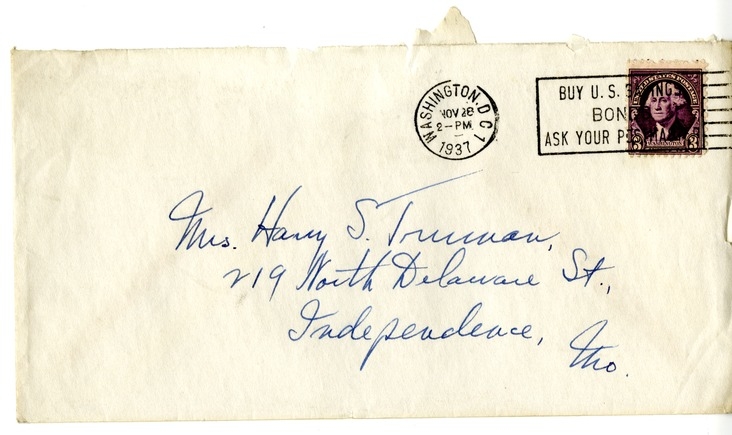 WASHINGTON, D.C. 1
NOV 28
2-PM
1937
BUY U.S. SAVINGS
BONDS
ASK YOUR POSTMASTER
UNITED STATES POSTAGE
WASHINGTON
3 3
Mrs. Harry S. Truman,
219 North Delaware St.,
Independence,
Mo.